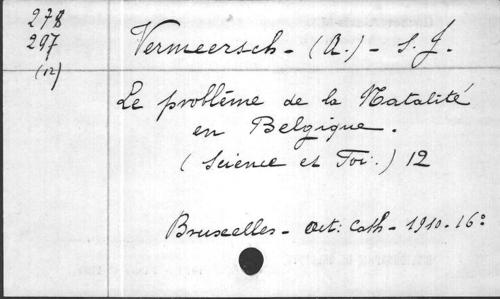 278
297
(12)
Vermeersch - (A.) - S. J.
Le problème de la Natalité
en Belgique.
(Science et Foi.) 12
Bruxelles - Oct: Cath - 1910 - 16°